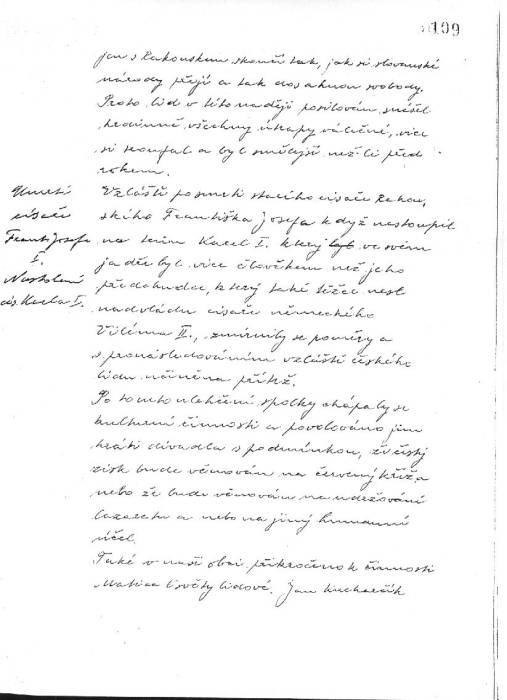 199
jen s Rakouskem skončí tak, jak si slovanské
národy přejí a tak dosáhnou svobody.
Proto lid v této naději posilován, snášel
hrdinně všechny útrapy válečné, více
si troufal a byl smělejší nežli před
rokem.
Úmrtí
císaře
Frant. Josefa
I.
Nastolení
cís. Karla I.
Vzláště po smrti starého císaře Rakou,
ského Františka Josefa když nastoupil
na trůn Karel I. který byl ve svém
jádře byl více člověkem než jeho
předchůdce, který také těžce nesl
nadvládu císaře německého
Viléma II., zmírnily se poměry a
s pronásledováním vzláště českého
lidu, přítrž.
Po tomto ulehčení spolky chápaly se
kulturní činnosti a povolováno jim
hráti divadla s podmínkou, že čistý
zisk bude věnován na červený kříž a
nebo že bude věnován na udržování
lazaretu a nebo na jiný humanní
účel.
Také v naší obci přikročeno k činnosti
Matice Osvěty lidové. Jan Kuchařčík